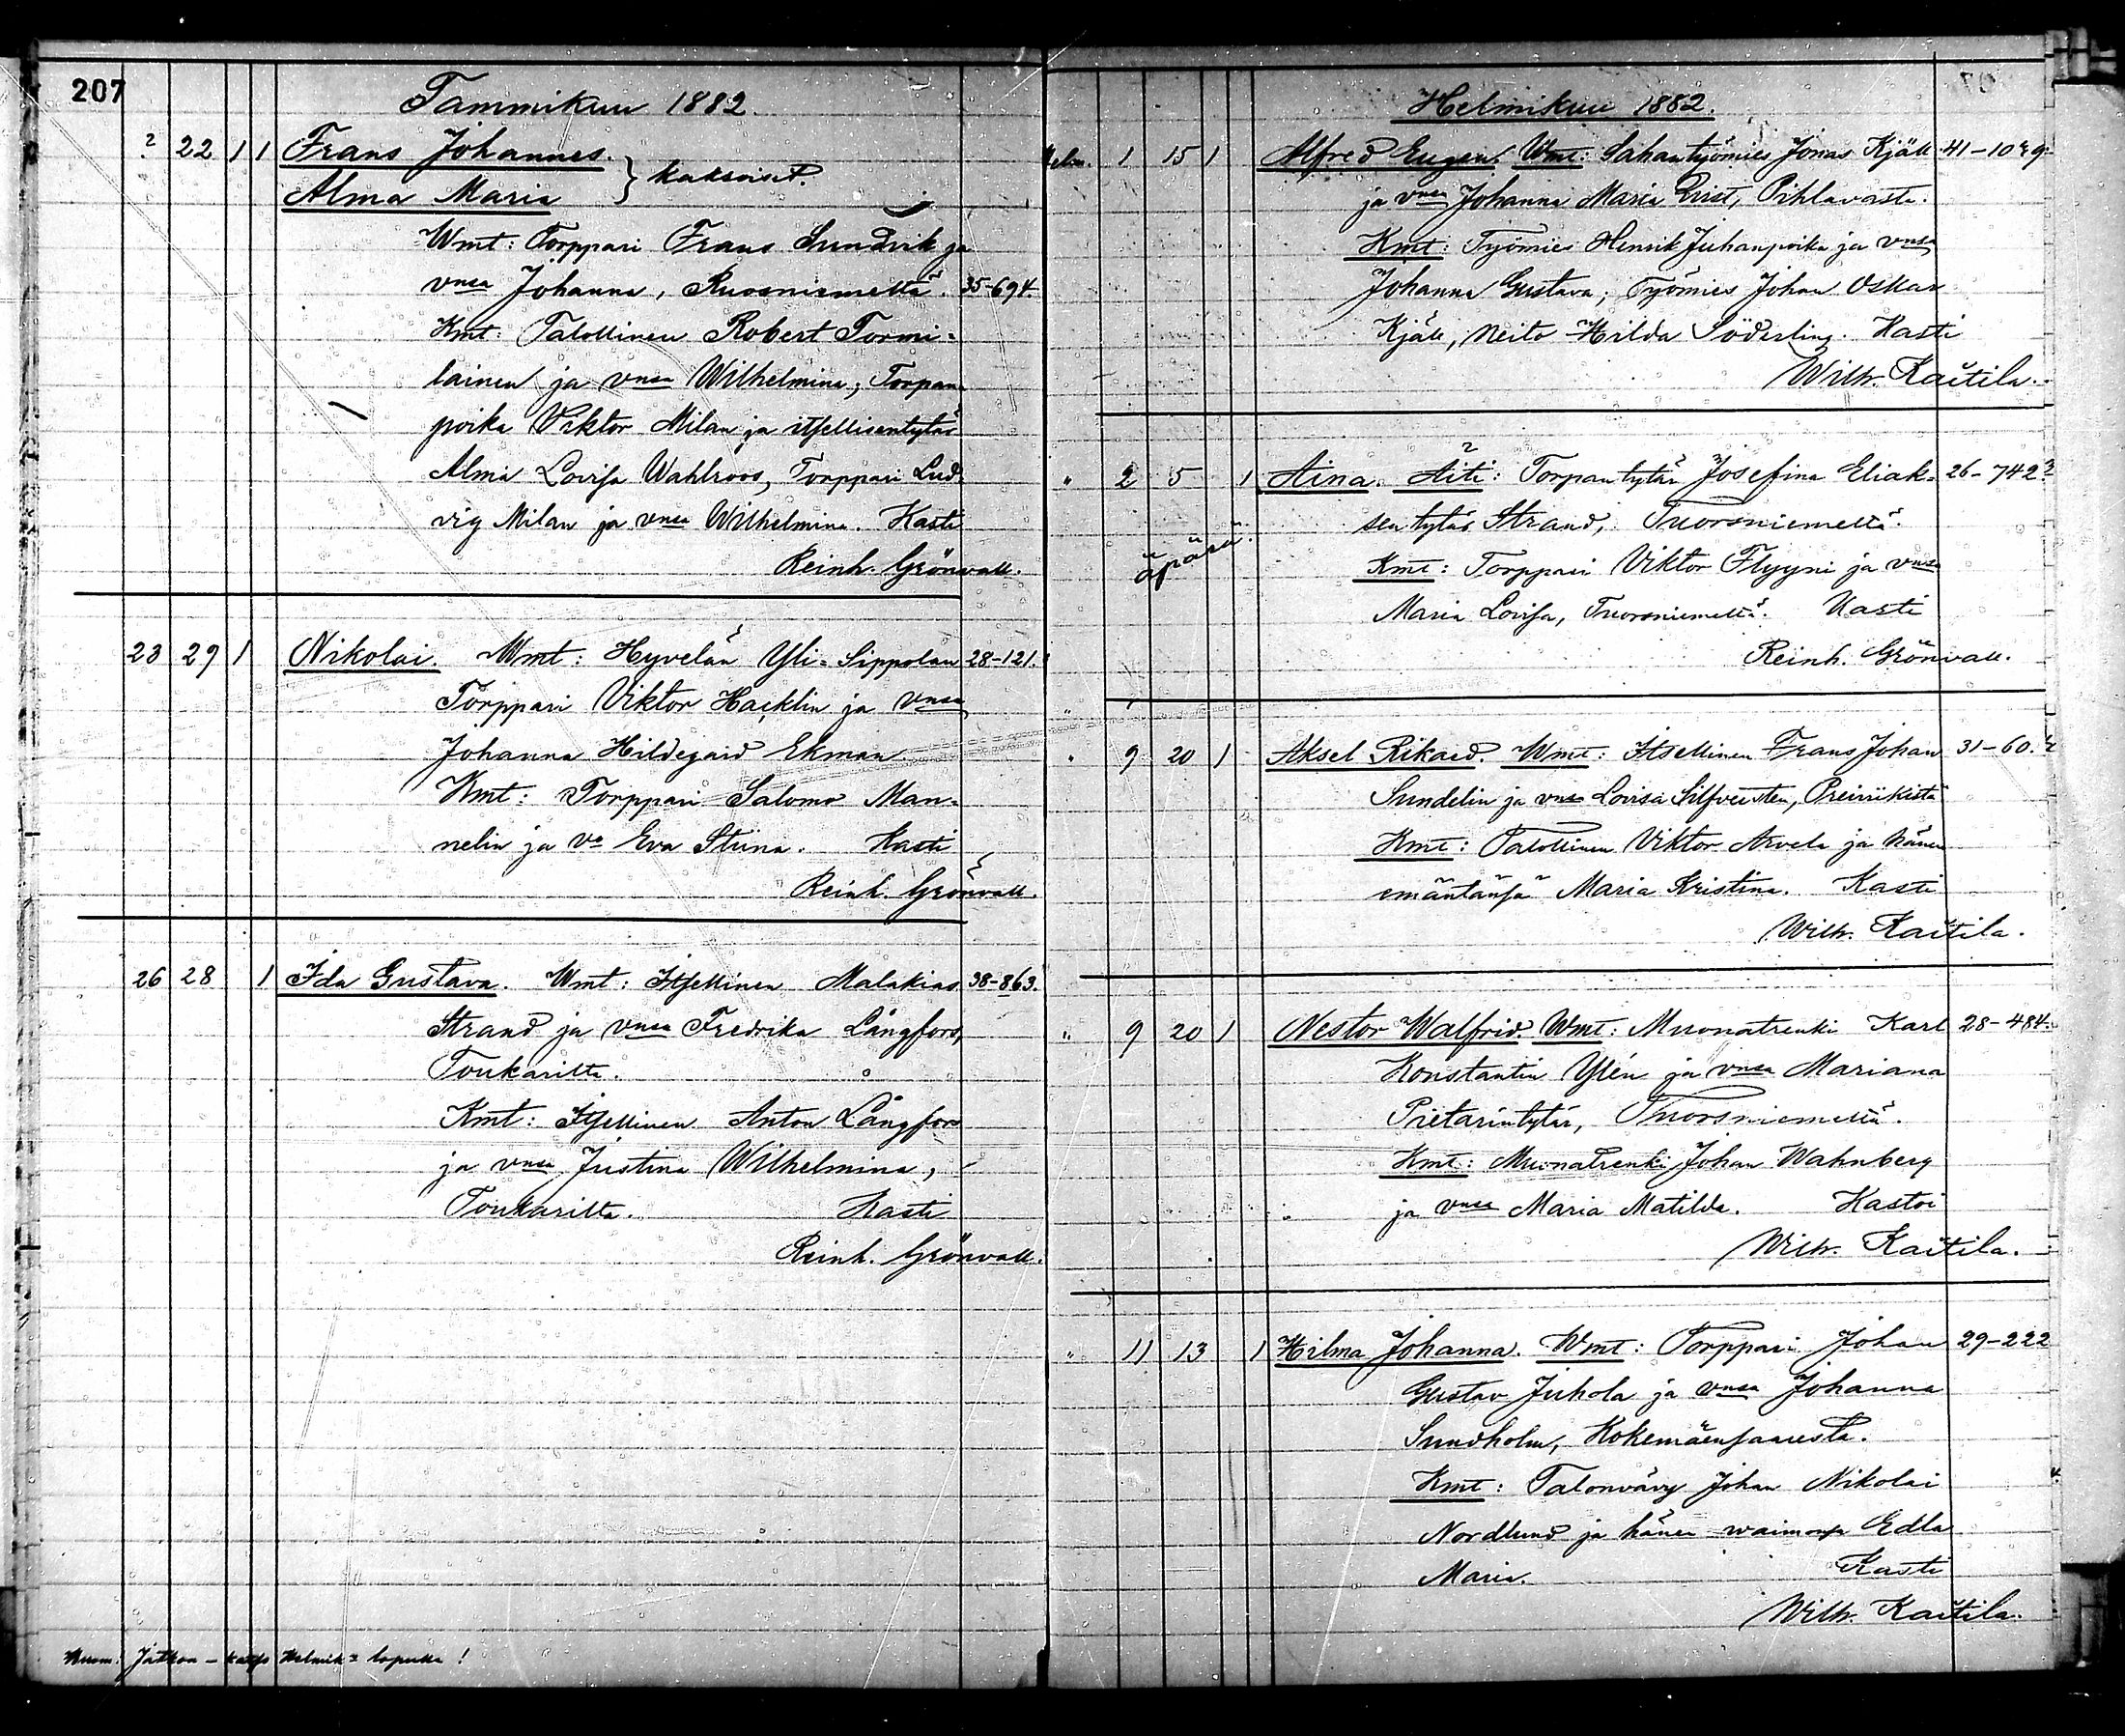 207
Tammikuu 1882.
? 22 1 1 Frans Johannes. } kaksoiset.
Alma Maria
Wmt: Torppari Frans Sundvik ja
vnsa Johanna, Ruosniemeltä. 35-694.
Kmt: Talollinen Robert Tormi-
lainen ja vnsa Wilhelmina, Torpan
poika Viktor Milan ja itsellisentytär
Alma Lovisa Wahlroos, Torppari Lud-
vig Milan ja vnsa Wilhelmina. Kasti
Reinh. Grönvall.
23 29 1 Nikolai. Wmt: Hyvelän Yli-Sippolan 28-121.
Torppari Viktor Hacklin ja vnsa
Johanna Hildegard Ekman.
Kmt: Torppari Salomo Man-
nelin ja vo Eva Stiina. Kasti
Reinh. Grönvall.
26 28 1 Ida Gustava. Wmt: Itsellinen Malakias 38-863.
Strand ja vnsa Fredrika Långfors,
Toukarilta.
Kmt: Itsellinen Anton Långfors
ja vnsa Justina Wilhelmina,
Toukarilta. Kasti
Reinh. Grönvall.
Muom: Jatkoa - katso Helmik= lopulla!
Helmikuu 1882.
Helm. 1 15 1 Alfred Eugen. Wmt: Sahantyömies Jonas Kjäll 41-1049.
ja vnsa Johanna Maria Qvist, Pihlavasta.
Kmt: Työmies Henrik Juhanpoika ja vnsa
Johanna Gustava; Työmies Johan Oskar
Kjäll, Neito Hilda Söderling. Kasti
Wilh. Kaitila.
" 2 5 1 Aina. Äiti: Torpantytär Josefina Eliak- 26-742
sentytär Strand, Tuorsniemeltä.
äpärä.
Kmt: Torppari Viktor Flyyni ja vnsa
Maria Lovisa, Tuorsniemeltä. Kasti
Reinh. Grönvall.
" 9 20 1 Aksel Rikard. Wmt: Itsellinen Frans Johan 31-60.
Sundelin ja vnsa Lovisa Silfversten, Preiviikistä
Kmt: Talollinen Viktor Arvela ja hänen
emäntänsä Maria Kristina. Kasti
Wilh. Kaitila.
" 9 20 1 Nestor Walfrid. Wmt: Muonatrenki Karl 28-484.
Konstantin Ylén ja vnsa Mariana
Pietarintytär, Tuorsniemeltä.
Kmt: Muonatrenki Johan Wahnberg
ja vnsa Maria Matilda. Kastoi
Wilh. Kaitila.
" 11 13 1 Hilma Johanna. Wmt: Torppari Johan 29-222
Gustav Juhola ja vnsa Johanna
Sundholm, Kokemäensaaresta.
Kmt: Talonvävy Johan Nikolai
Nordlund ja hänen waimonsa Edla
Maria. Kasti
Wilh. Kaitila.